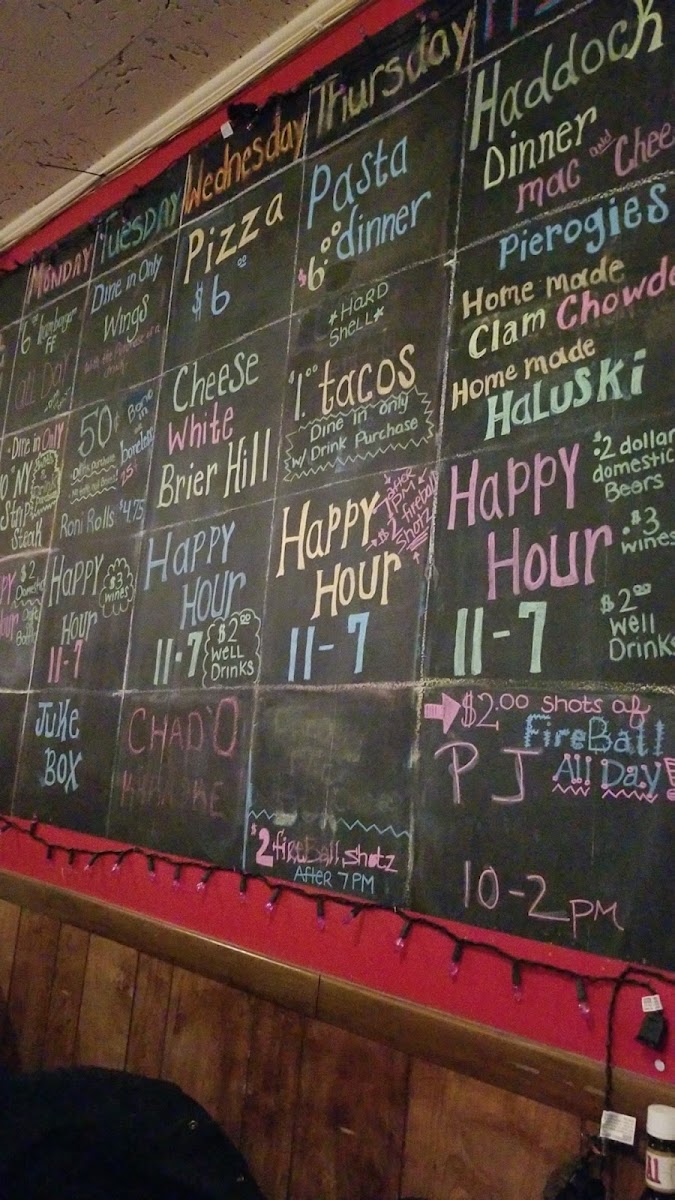 Monday
Hamburger
FF
all DAY
Dine in Only
NY
Strip
Steak
$2
Happy
Hour
11-7
$3
wines
Juke
Box
Tuesday
Dine in Only
Wings
with the purchase of a
50¢
Bone
in
boneless
Roni Rolls $4.75
Happy
Hour
11-7
$2.00
Well
Drinks
CHAD'O
Wednesday
Pizza
$6.00
Cheese
White
Brier Hill
Happy
Hour
11-7
after
7PM
$2 fireball
shotz
$2 fireBall shotz
After 7 PM
Thursday
Pasta
$6.00 dinner
*HARD
SHELL*
$1.00 tacos
Dine in only
w/ Drink Purchase
Haddock
Dinner
mac and Chee
Pierogies
Home made
Clam Chowde
Home made
Haluski
Happy
Hour
11-7
$2 dollar
domestic
Beers
$3
wines
$2.00
Well
Drinks
$2.00 shots of
FireBall
All Day!
PJ
10-2 pm
A1